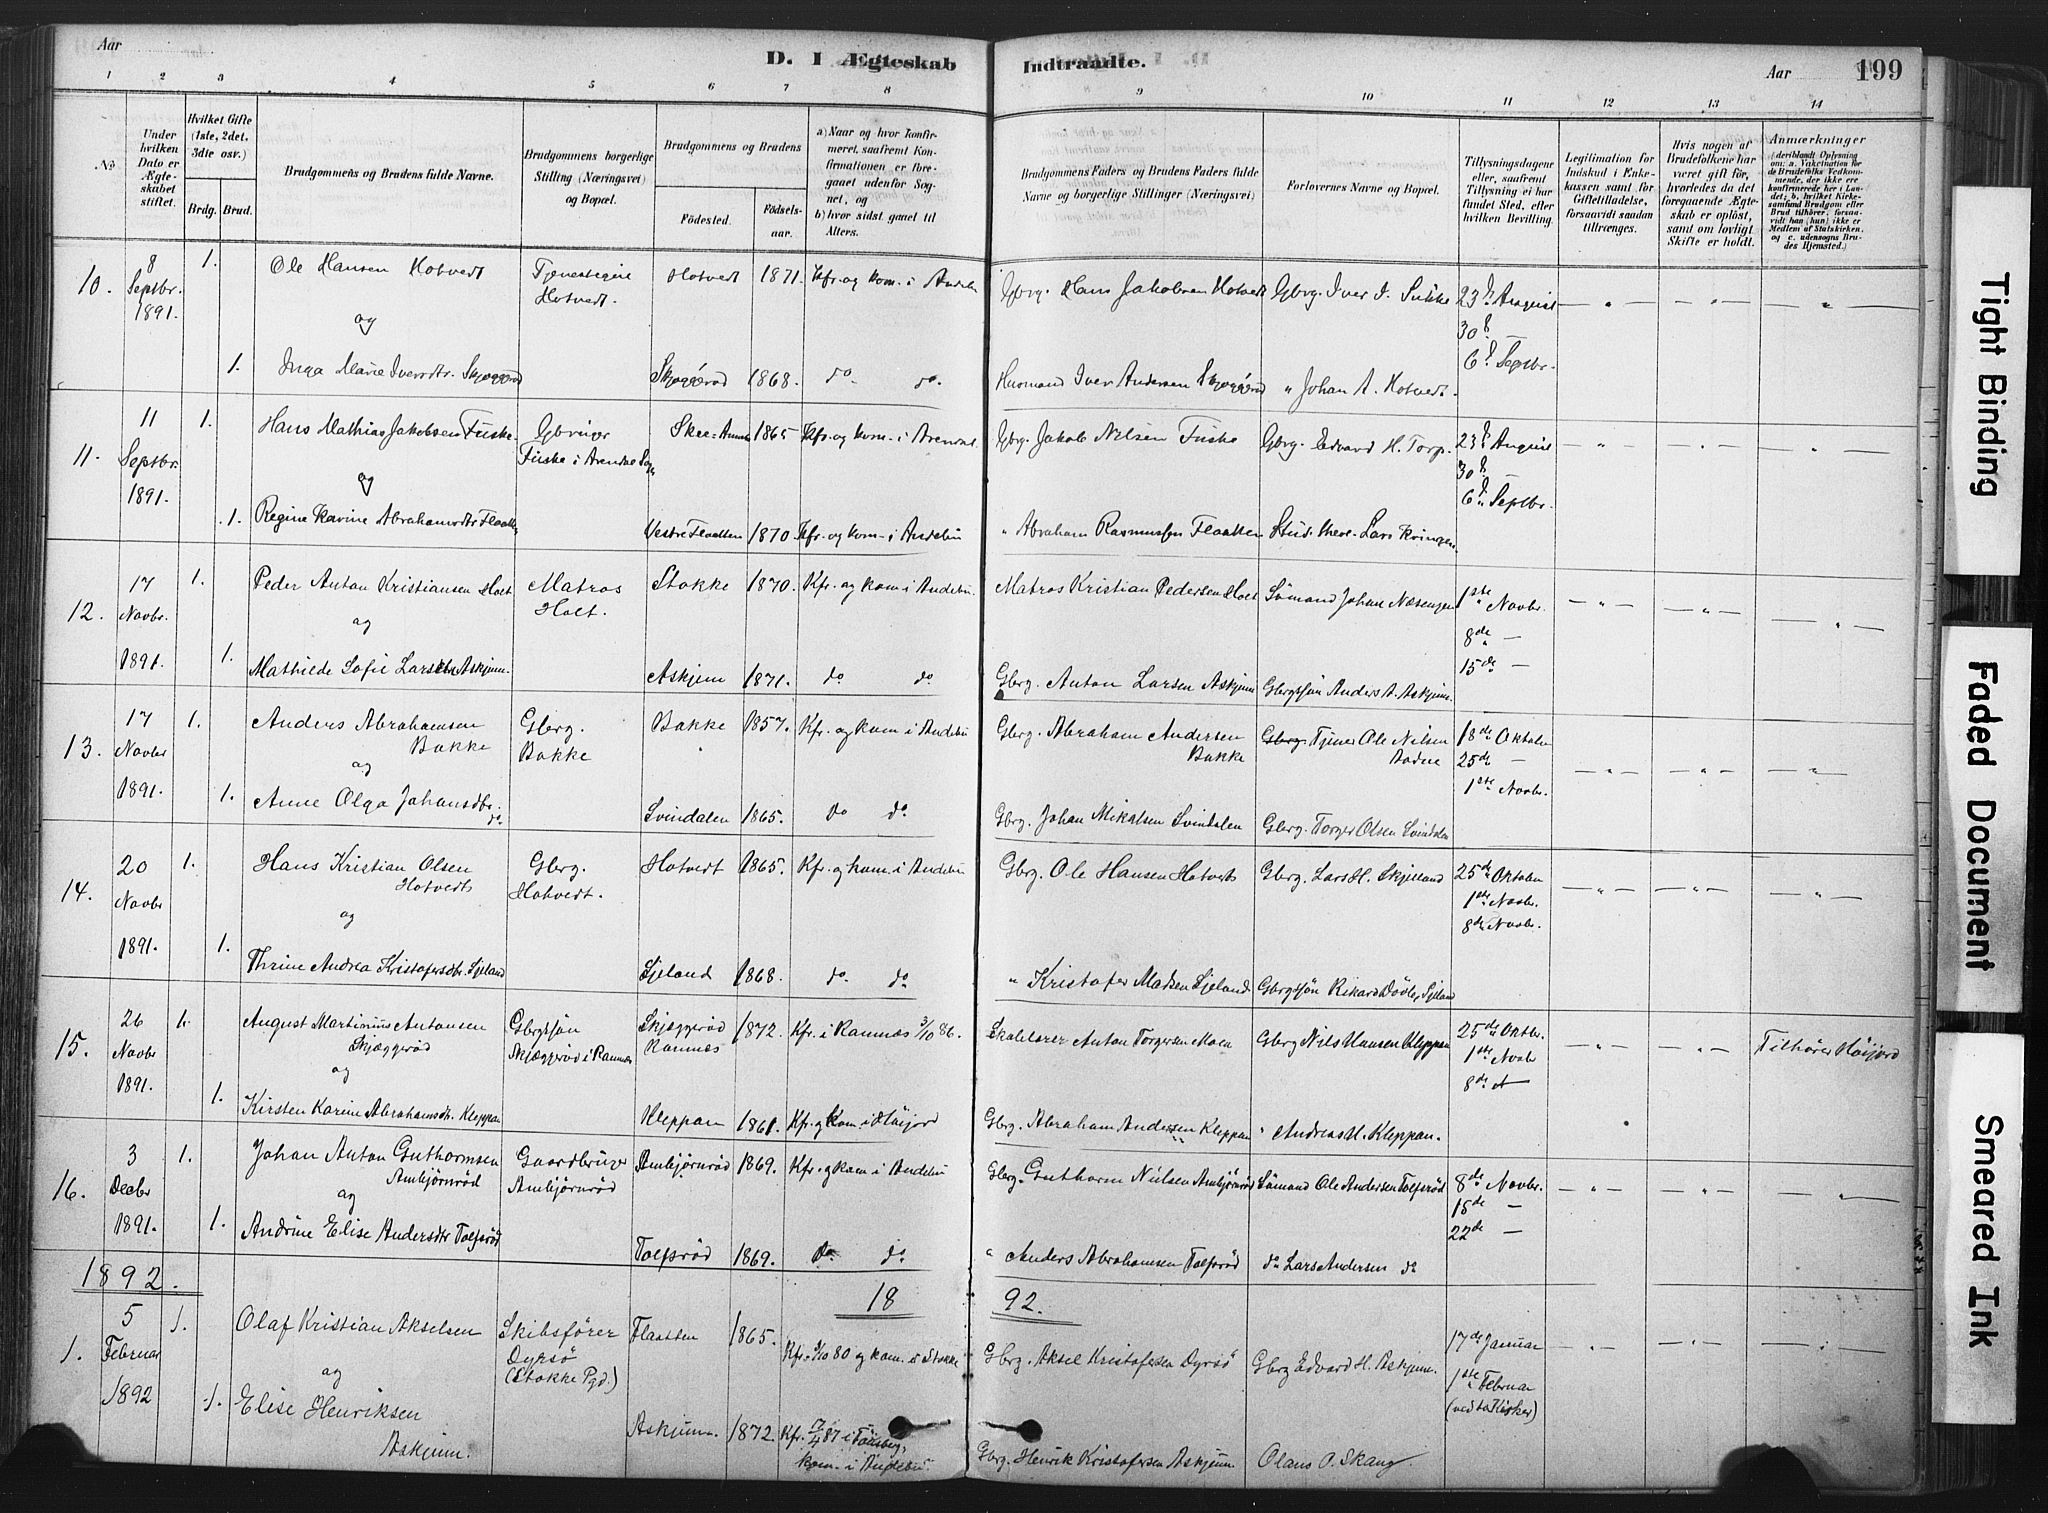 Aar
D. I Ægteskab Indtraadte.
Aar 199
1 2 3 4 5 6 7 8 9 10 11 12 13 14
No
Under hvilken Dato er Ægteskabet stiftet.
Hvilket Gifte (1ste, 2det, 3die osv.)
Brdg. Brud.
Brudgommens og Brudens fulde Navne.
Brudgommens borgerlige Stilling (Næringsvei) og Bopæl.
Brudgommens og Brudens
Fødested. Fødselsaar.
a) Naar og hvor konfirmeret, saafremt Konfirmationen er foregaaet udenfor Sognet, og
b) hvor sidst gaaet til Alters.
Brudgommens Faders og Brudens Faders fulde Navne og borgerlige Stillinger (Næringsvei)
Forlovernes Navne og Bopæl.
Tillysningsdagene eller, saafremt Tillysning ei har fundet Sted, efter hvilken Bevilling.
Legitimation for Indskud i Enkekassen samt for Giftetilladelse, forsaavidt saadan tiltrænges.
Hvis nogen af Brudefolkene har været gift før, hvorledes da det foregaaende Ægteskab er opløst, samt om lovligt Skifte er holdt.
Anmærkninger
(deriblandt Oplysning om: a. Vakcination for de Brudefolks Vedkommende, der ikke ere konfirmerede her i Landet; b. hvilket Kirkesamfund Brudgom eller Brud tilhører, forsaavidt han (hun) ikke er Medlem af Statskirken, og c. udensogns Brudes Hjemsted.)
10. 8 Septbr. 1891. 1. Ole Hansen Hotvedt Hotvedt. Hotvedt 1871. Kfr. og kom. i Andebu Gbrg. Hans Jakobsen Hotvedt Gbrg. Iver J. Sukke 23de August — " — — " — — " —
og 30te —
1. Inga Marie Iversdtr. Skjøggerød Skjøggerød 1868. do. do. Husmand Iver Andersen Skjøggerød " Johan A. Hotvedt. 6te Septbr.
11. 11 Septbr. 1891. 1. Hans Mathias Jakobsen Fuske Gbruger Fuske i Arendal Sogn 1865 Kfr. og kom. i Arendal Gbrg. Jakob Nilsen Fuske Gbrg. Edvard H. Torp. 23de August — " — — " — — " —
og 30te —
1. Regine Karine Abrahamsdtr Flaatten Vestre Flaatten 1870 Kfr. og kom. i Andebu " Abraham Rasmussen Flaatten Stud. theol. Lars 6te Septbr.
12. 17 Novbr. 1891. 1. Peder Anton Kristiansen Holt Matros Holt. Stokke 1870. Kfr. og kom i Andebu. Matros Kristian Pedersen Holt Sømand Johan 1ste Novbr. — " — — " — — " —
og 8de —
1. Mathilde Sofie Larsdtr Askjum. Askjem 1871. do do Gbrg. Anton Larsen Askjum Gbrgsøn Anders A. Askjum. 15de —
13. 17 Novbr 1891. 1. Anders Abrahamsen Bakke Gbrg. Bakke Bakke 1857. Kfr. og kom i Andebu Gbrg. Abraham Andersen Bakke Gbrg. Tjener Ole Nilsen 18de Oktober — " — — " — — " —
og 25de —
1. Anne Olga Johansdtr. do. Svindalen 1865. do do Gbrg. Johan Mikalsen Svindalen Gbrg. Torger Olsen Svindalen 1ste Novbr.
14. 20 Novbr 1891. 1. Hans Kristian Olsen Hotvedt Gbrg. Hotvedt. Hotvedt 1865. Kfr. og kom. i Andebu Gbrg. Ole Hansen Hotvedt Gbrg. Lars H. Skjelland 25de Oktober — " — — " — — " —
og 1ste Novbr.
8de Novbr.
1. Thrine Andrea Kristofersdtr. Sjeland Sjeland 1868. do do " Kristofer Madsen Sjeland Gbrgsøn Rikard Sjeland
15. 26 Novbr 1891. 1. August Martinius Antonsen Skjæggerød Gbrgsøn Skjæggerød i Ramnæs Skjæggerød Ramnæs 1872. Kfr. i Ramnæs 3/10 86. Anton Torgersen Moen Gbrg Nils Hansen Kleppan 25de Oktbr. — " — — " — Tilhører Høijord
og 1ste Novbr
8de
1. Kirsten Karine Abrahamsdtr. Kleppan Kleppan 1861. Kfr. og kom. i Høijord Gbrg. Abraham Andersen Kleppan " Andreas H. Kleppan.
16. 3 Decbr 1891. 1. Johan Anton Guthormsen Ambjørnrød Gaardbruger Ambjørnrød Ambjørnrød 1869. Kfr. og kom i Andebu Gbrg. Guthorm Nilsen Ambjørnrød Sømand Ole Andersen Tolfsrød 8de Novbr. — " — — " — — " —
og 15de —
1. Andrine Elise Andersdtr Tolfsrød Tolfsrød 1869. do do " Anders Abrahamsen Tolfsrød do Lars Andersen do 22de —
1892. 18 92.
1. 5 Februar 1892 1. Olaf Kristian Akselsen Skibsfører Dyrsø (Stokke Pgd.) Flaatten 1865. Kfr. /10 80 og kom. i Stokke Gbrg. Aksel Kristofersen Dyrsø Gbrg Edvard H. Askjum. 17de Januar — " — — " — — " —
og 1ste Februar
1. Elise Henriksen Askjum. Askjum. 1872. Kfr. /4 87 i Tønsberg, kom. i Andebu. Gbrg. Henrik Kristofersen Askjum Olaus O. Skaug.
Tight Binding
Faded Document
Smeared Ink